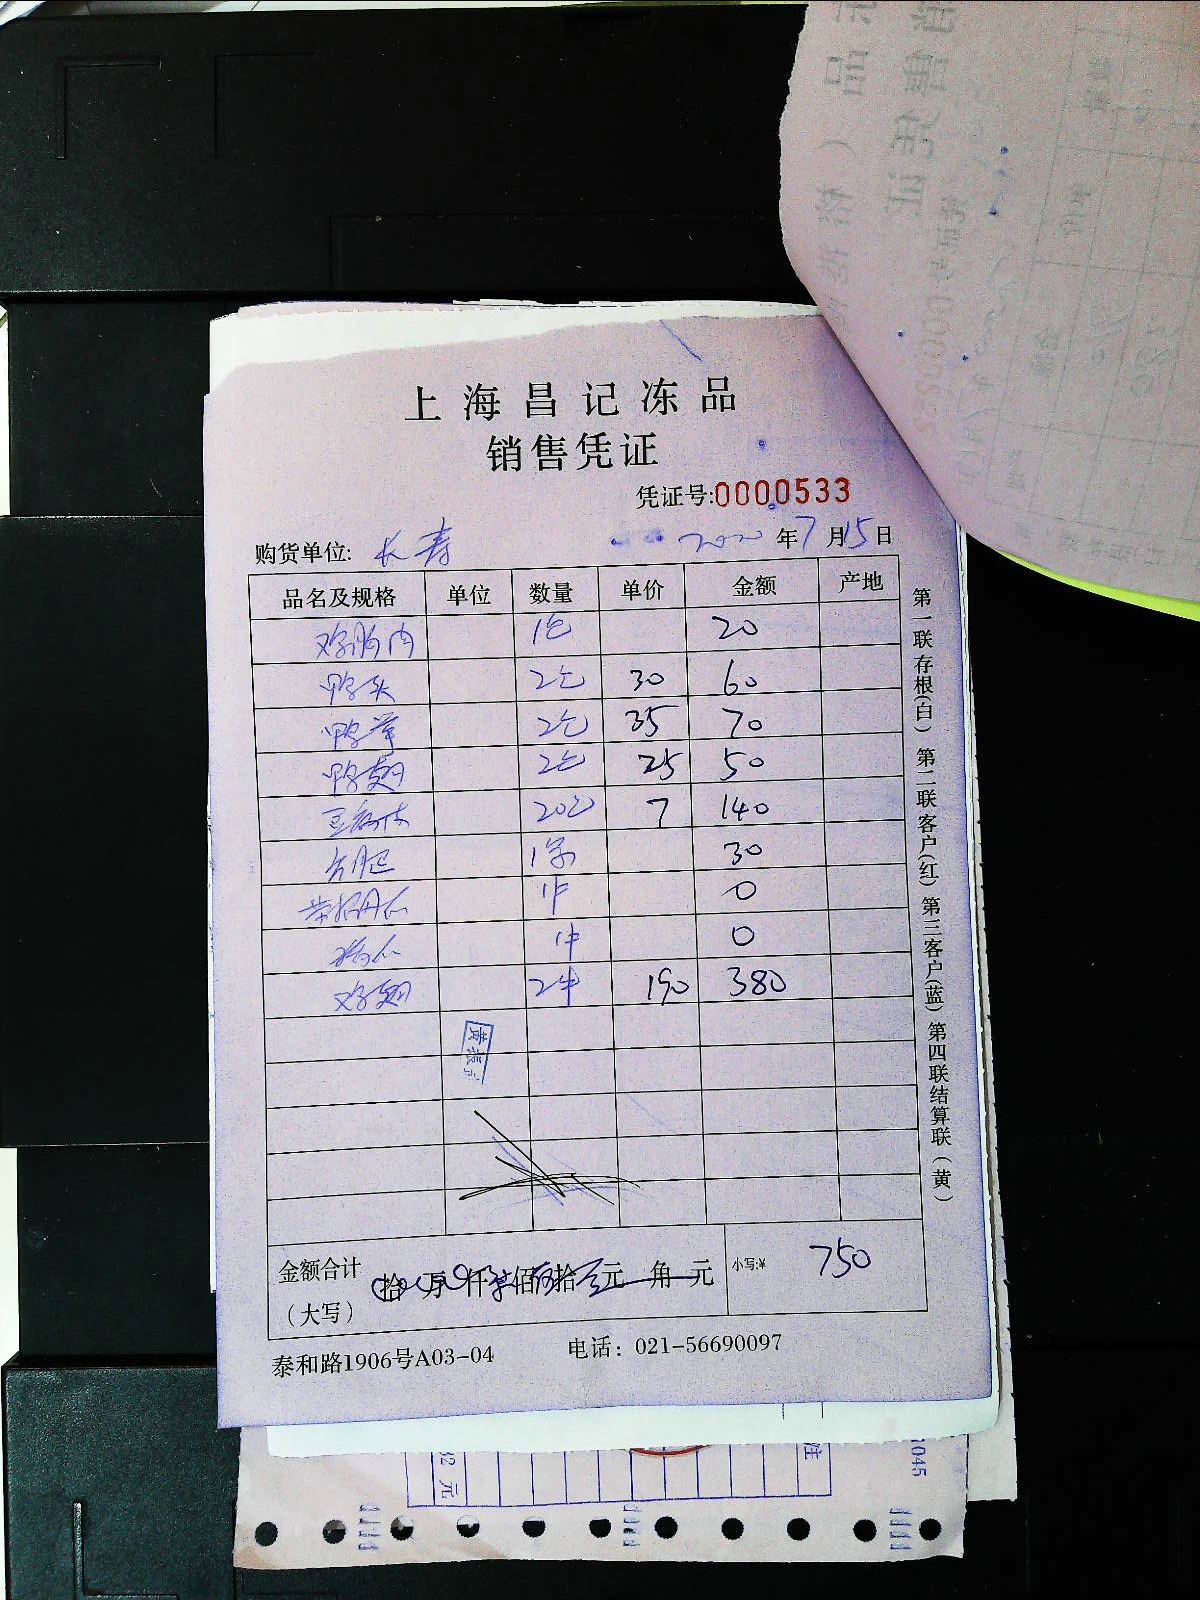 上海昌记冻品
销售凭证
凭证号:0000533
购货单位: 长寿 2020年7月15日
品名及规格 单位 数量 单价 金额 产地
鸡胸肉 1包 20
鸭头 2包 30 60
鸭掌 2包 35 70
鸭翅 2包 25 50
豆腐皮 20包 7 140
1条 30
1件 0
1件 0
鸡翅 2件 190 380
金额合计 拾万仟柒佰伍拾元角元 小写:¥ 750
（大写）
泰和路1906号A03-04 电话：021-56690097
第一联存根(白) 第二联客户(红) 第三客户(蓝) 第四联结算联(黄)
元
注
1045